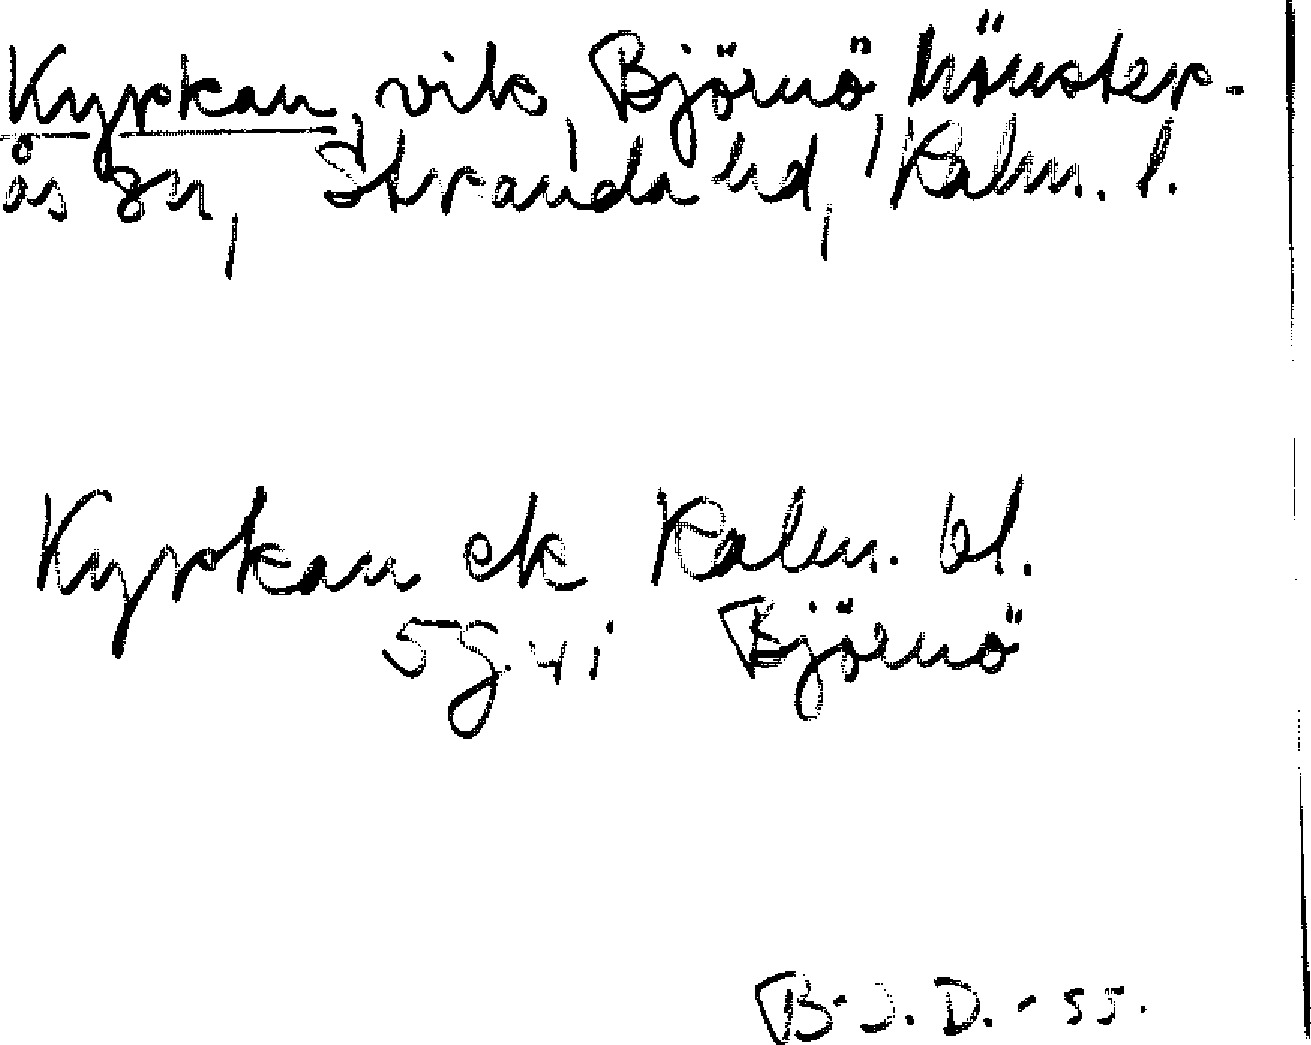 Kyrkan, vik, Björnö, Mönster-
ås sn, Stranda hd, Kalm. l.
Kyrkan ek Kalm. bl.
5g 4i Björnö
B-J. D. -55.